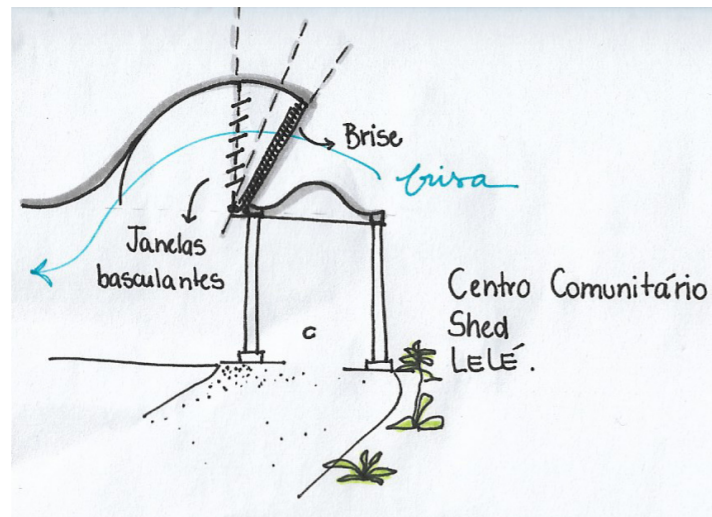 Brise
brisa
Janelas
basculantes
Centro Comunitário
Shed
LELÉ.
C